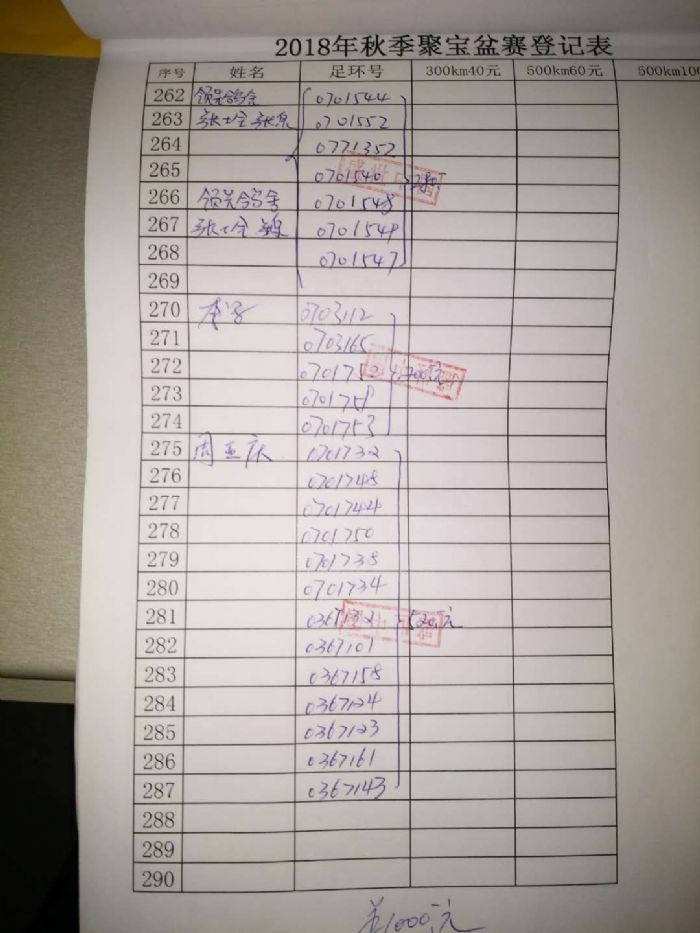 2018年秋季聚宝盆赛登记表
序号 姓名 足环号 300km40元 500km60元 500km100
262 领先鸽舍 0701544
263 张士全 张泉 0701552
264 0771352
265 0701540 280元
266 领先鸽舍 0701548
267 张士全 0701549
268 0701547
269
270 0703112
271 0703165
272 0701752 200元
273 0701758
274 0701753
275 周亚庆 0701732
276 0701748
277 0701744
278 0701750
279 0701738
280 0701734
281 0367132 520元
282 0367101
283 0367158
284 0367124
285 0367123
286 0367161
287 0367143
288
289
290
1000元